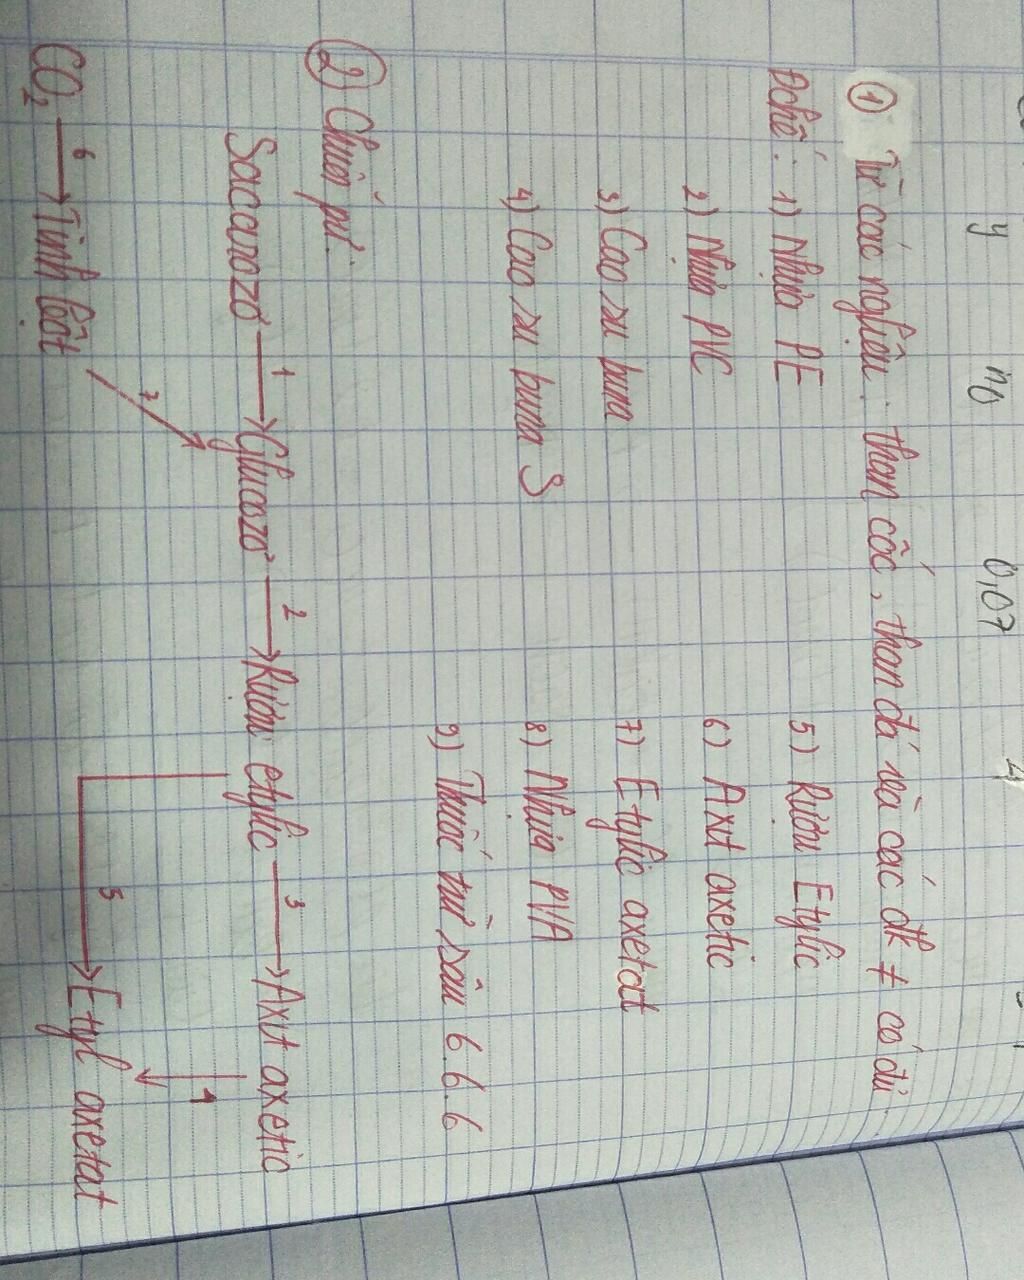 ① Từ các nghiệu : than cốc, than đá và các đk ≠ có đủ.
Đchế : 1) Nhựa PE
2) Nhựa PVC
3) Cao su buna
4) Cao su buna S
5) Rượu Etylic
6) Axit axetic
7) Etylic axetat
8) Nhựa PVA
9) Thuốc trừ sâu 6.6.6
② Chuỗi pứ:
Sacarozơ 1→ Glucozơ 2→ Rượu etylic 3→ Axit axetic
7 5 4
CO₂ 6→ Tinh bột Etyl axetat
y
0,07
4